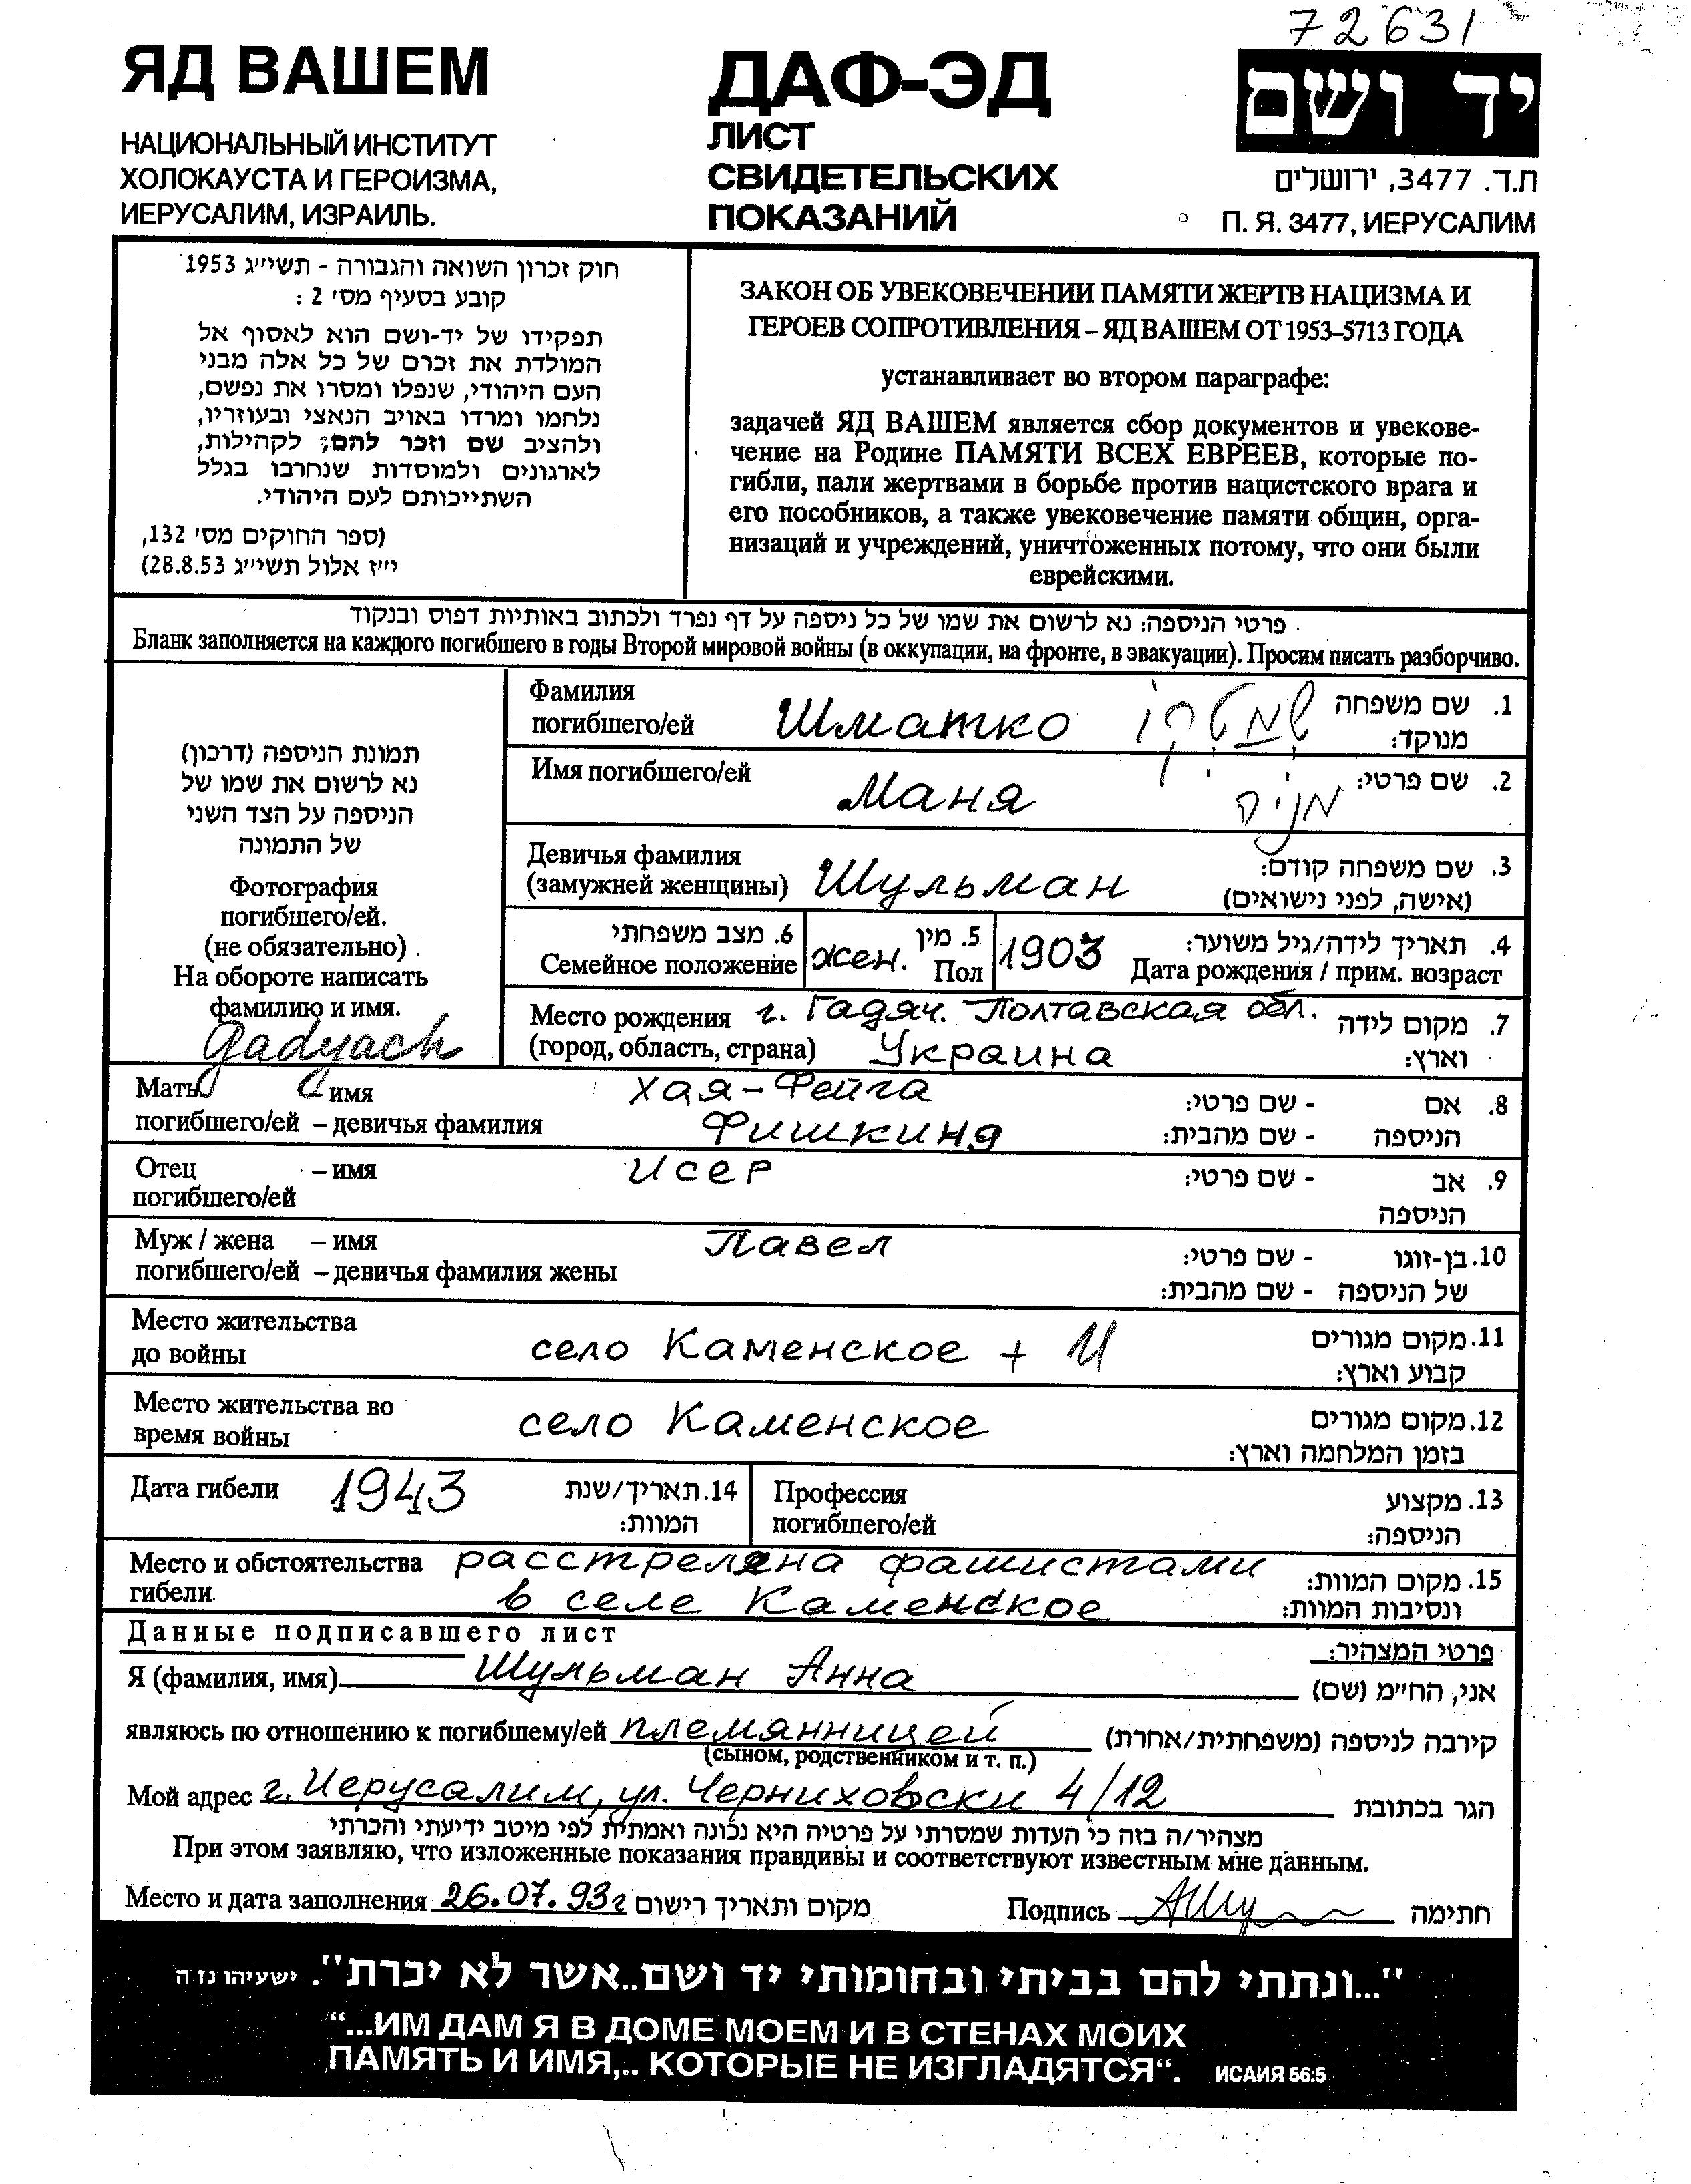 72631
ЯД ВАШЕМ
НАЦИОНАЛЬНЫЙ ИНСТИТУТ
ХОЛОКАУСТА И ГЕРОИЗМА,
ИЕРУСАЛИМ, ИЗРАИЛЬ.
ДАФ-ЭД
ЛИСТ
СВИДЕТЕЛЬСКИХ
ПОКАЗАНИЙ
יד ושם
ת.ד. 3477, ירושלים
П. Я. 3477, ИЕРУСАЛИМ
חוק זכרון השואה והגבורה - תשי״ג 1953
קובע בסעיף מס׳ 2 :
תפקידו של יד-ושם הוא לאסוף אל
המולדת את זכרם של כל אלה מבני
העם היהודי, שנפלו ומסרו את נפשם,
נלחמו ומרדו באויב הנאצי ובעוזריו,
ולהציב שם וזכר להם; לקהילות,
לארגונים ולמוסדות שנחרבו בגלל
השתייכותם לעם היהודי.
(ספר החוקים מס׳ 132,
י״ז אלול תשי״ג 28.8.53)
ЗАКОН ОБ УВЕКОВЕЧЕНИИ ПАМЯТИ ЖЕРТВ НАЦИЗМА И
ГЕРОЕВ СОПРОТИВЛЕНИЯ – ЯД ВАШЕМ ОТ 1953–5713 ГОДА
устанавливает во втором параграфе:
задачей ЯД ВАШЕМ является сбор документов и увекове-
чение на Родине ПАМЯТИ ВСЕХ ЕВРЕЕВ, которые по-
гибли, пали жертвами в борьбе против нацистского врага и
его пособников, а также увековечение памяти общин, орга-
низаций и учреждений, уничтоженных потому, что они были
еврейскими.
פרטי הניספה: נא לרשום את שמו של כל ניספה על דף נפרד ולכתוב באותיות דפוס ובנקוד
Бланк заполняется на каждого погибшего в годы Второй мировой войны (в оккупации, на фронте, в эвакуации). Просим писать разборчиво.
תמונת הניספה (דרכון)
נא לרשום את שמו של
הניספה על הצד השני
של התמונה
Фотография
погибшего/ей.
(не обязательно)
На обороте написать
фамилию и имя.
Gadyach
Фамилия
погибшего/ей Шматко שמטקו
1. שם משפחה
מנוקד:
Имя погибшего/ей Маня מניה 2. שם פרטי:
Девичья фамилия
(замужней женщины) Шульман
3. שם משפחה קודם:
(אישה, לפני נישואים)
6. מצב משפחתי
Семейное положение
жен. 5. מין
Пол
1903 4. תאריך לידה/גיל משוער:
Дата рождения / прим. возраст
Место рождения г. Гадяч. Полтавская обл. 7. מקום לידה
(город, область, страна) Украина וארץ:
Мать – имя Хая-Фейга 8. אם - שם פרטי:
погибшего/ей – девичья фамилия Фишкина הניספה - שם מהבית:
Отец – имя Исер 9. אב - שם פרטי:
погибшего/ей הניספה
Муж / жена – имя Павел 10. בן-זוגו - שם פרטי:
погибшего/ей – девичья фамилия жены של הניספה - שם מהבית:
Место жительства
до войны село Каменское +
11. מקום מגורים
קבוע וארץ:
Место жительства во
время войны село Каменское
12. מקום מגורים
בזמן המלחמה וארץ:
Дата гибели 1943 14. תאריך/שנת
המוות:
Профессия
погибшего/ей
13. מקצוע
הניספה:
Место и обстоятельства расстреляна фашистами 15. מקום המוות:
гибели в селе Каменское ונסיבות המוות:
Данные подписавшего лист פרטי המצהיר:
Я (фамилия, имя) Шульман Анна אני, החי״מ (שם)
являюсь по отношению к погибшему/ей племянницей קירבה לניספה (משפחתית/אחרת)
(сыном, родственником и т. п.)
Мой адрес г. Иерусалим, ул. Черниховски 4/12 הגר בכתובת
מצהיר/ה בזה כי העדות שמסרתי על פרטיה היא נכונה ואמתית לפי מיטב ידיעתי והכרתי
При этом заявляю, что изложенные показания правдивы и соответствуют известным мне данным.
Место и дата заполнения 26.07.93г מקום ותאריך רישום Подпись חתימה
"...ונתתי להם בביתי ובחומותי יד ושם..אשר לא יכרת". ישעיהו נז ה
“...ИМ ДАМ Я В ДОМЕ МОЕМ И В СТЕНАХ МОИХ
ПАМЯТЬ И ИМЯ,.. КОТОРЫЕ НЕ ИЗГЛАДЯТСЯ“. ИСАИЯ 56:5